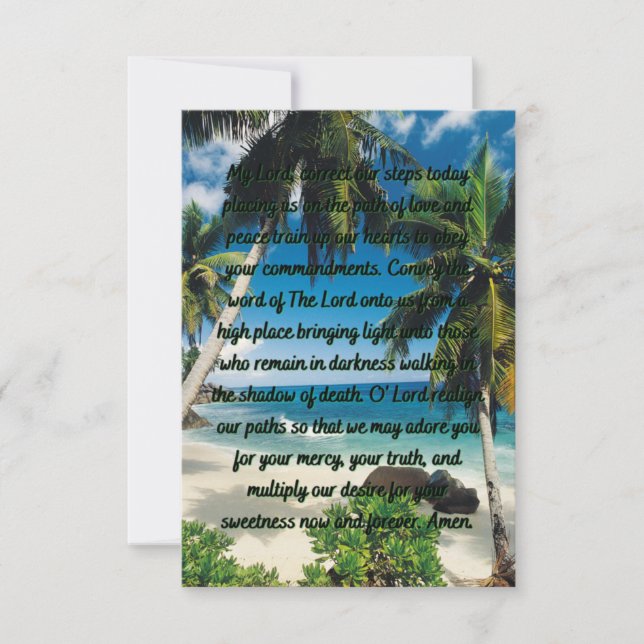 My Lord, correct our steps today
placing us on the path of love and
peace train up our hearts to obey
your commandments. Convey the
word of The Lord onto us from a
high place bringing light unto those
who remain in darkness walking in
the shadow of death. O' Lord realign
our paths so that we may adore you
for your mercy, your truth, and
multiply our desire for your
sweetness now and forever. Amen.